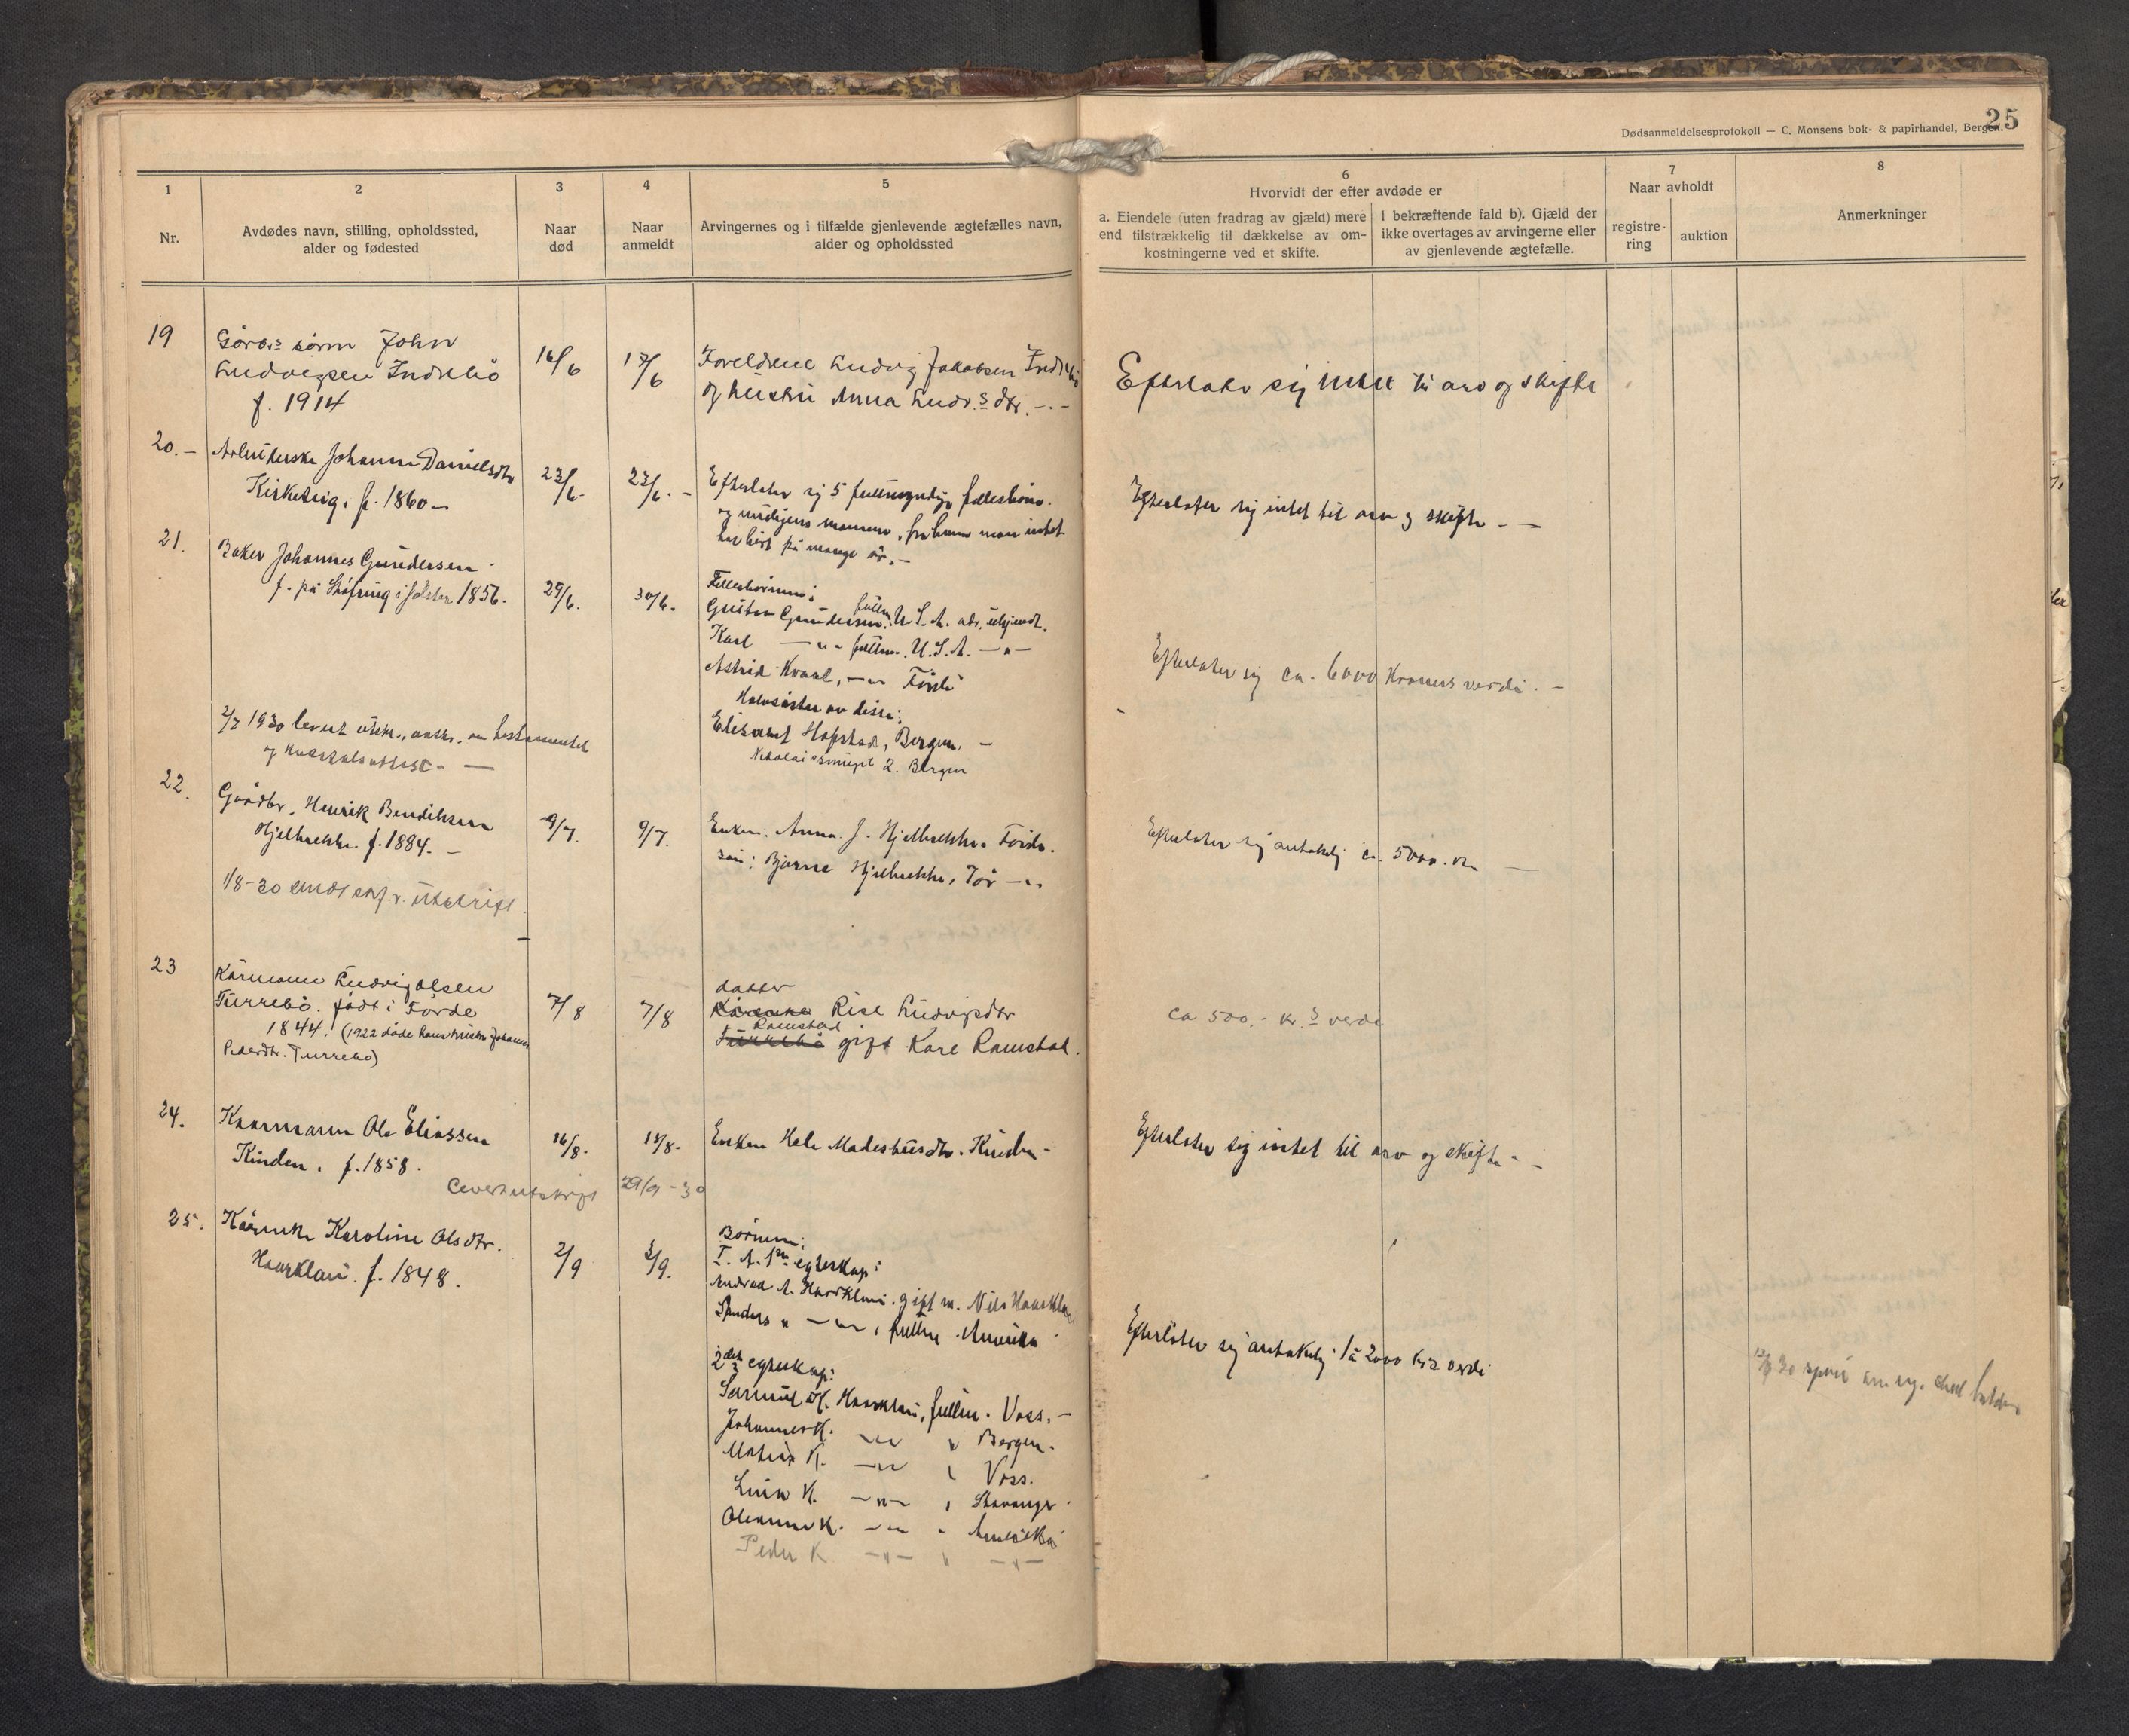 25
Dødsanmeldelsesprotokoll — C. Monsens bok- & papirhandel, Bergen.
1
2
3
4
5
6
7
8
Nr.
Avdødes navn, stilling, opholdssted,
alder og fødested
Naar
død
Naar
anmeldt
Arvingernes og i tilfælde gjenlevende ægtefælles navn,
alder og opholdssted
Hvorvidt der efter avdøde er
a. Eiendele (uten fradrag av gjæld) mere
end tilstrækkelig til dækkelse av om-
kostningerne ved et skifte.
I bekræftende fald b). Gjæld der
ikke overtages av arvingerne eller
av gjenlevende ægtefælle.
Naar avholdt
registre-
ring
auktion
Anmerkninger
19
sønn John
Ludvigsen Indrebö
f. 1914
16/6
17/6
Foreldrene Ludvig Jakobsen Indrebö
og hustru Anna Ludv.s dtr. -.-
Efterlater sig intet til arv og skifte
20. -
Johanne Danielsdtr
f. 1860 -
23/6.
23/6. -
Efterlater sig 5 fullmyndige fellesbörn.
og mannen, fra hvem man intet
har hört på mange år. -
Efterlater sig intet til arv og skifte - —
21.
Baker Johannes Gundersen
f. på i Jölster 1856.
29/6.
30/6.
Fellesbörnene:
Gustav Gundersen. fullm. U.S.A. adr. ukjendt.
Karl — " - fullm. U.S.A. — " —
Astrid Kvaal, — " — Förde
Halvsöster av disse:
Hopstad, Bergen. —
Nikolaismuget 2. Bergen
Efterlater sig ca. 6000 Kroners verdi. -
2/7 1930 levert utskr., av testamentet
og
22.
Gårdbr. Henrik Bendiksen
Hjelbrekke. f. 1884. -
9/7.
9/7.
Enken. Anna J. Hjelbrekke. Förde.
sön: Bjarne Hjelbrekke, — " -
Efterlater sig antakelig ca. 5000. kr —
1/8-30 sendt skf.r. utskrift.
23
Kårmann Ludvig Olsen
Turrebö. født i Förde
1844. (1922 døde hans hustru Johanne
Pedersdtr. Turrebö)
7/8
7/8
datter
Kårenke Rise Ludvigsdtr
Ramstad
Turrebö gift Kare Ramstad.
ca 500,- kr.s verdi
24.
Kaarmann Ole Eliassen
Kinden. f. 1858.
16/8.
18/8.
Enken Kinden -
Efterlater sig intet til arv og skifte - -
Levert utskrift 29/9 - 30
25.
Kårenke Karoline Olsdtr.
Haarklau. f. 1848.
2/9
3/9.
Börnene:
I. A. 1ste egteskap:
Andrea A. Haarklau. gift m. Nils Haarklau
Anders " — " — , fullm. Amerika
2det egteskap:
Samuel K. Haarklau, fullm. Voss. -
Johannes K. — " — " Bergen.
Matias K. — " — " Voss.
K. — " — " Stavanger.
K. — " — " Amerika
Peder K — " — " — " —
Efterlater sig antakelig 1 à 2000 kr.s verdi